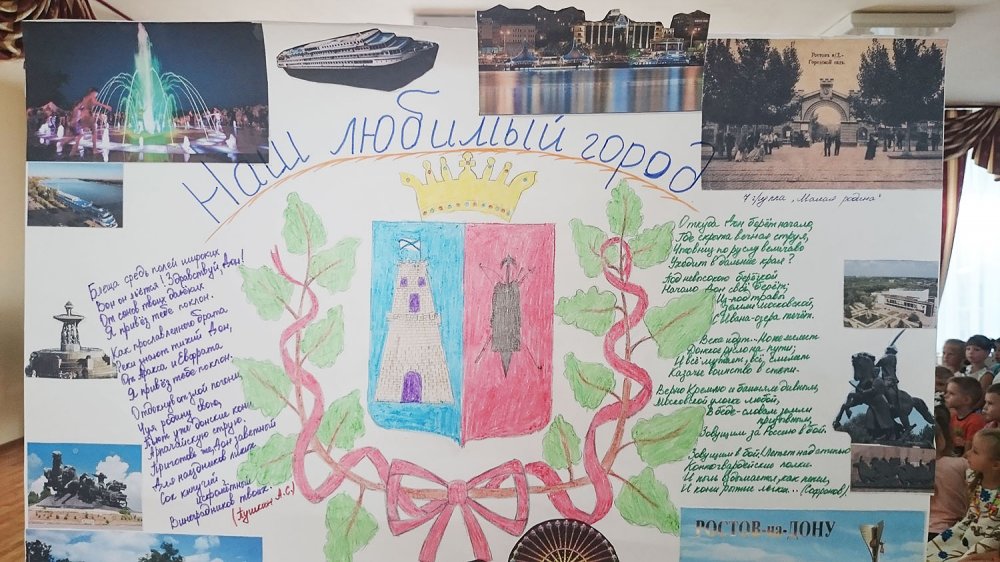 Ростовъ н/Д.-
Городской садъ.
Наш любимый город
7 группа "Малая родина"
Блеща средь полей широких
Вон он льётся! Здравствуй, Дон!
От сынов твоих далёких
Я привёз тебе поклон.
Как прославленного брата
Реки знают тихий Дон,
От Аракса и Евфрата
Я привёз тебе поклон.
Отдохнув от злой погони,
Чуя родину свою,
Пьют уже донские кони
Арпачайскую струю.
Приготовь же, Дон заветный
Для наездников лихих
Сок кипучий,
искромётный
Виноградников твоих.
(Пушкин А.С.)
Откуда Дон берёт начало,
Где скрыта вечная струя,
Чтоб вниз по руслу величаво
Уходит в дальние края?
Под невысокою берёзкой
Начало Дон свой берёт;
Из-под травы
земли московской,
С Ивана-озера течёт.
Века идут...
Донское русло на пути;
И всё мужает, всё
Казачье воинство в степи.
Верно Кремлю и башням давним,
Московской улочке любой,
В беде - словам земли
Зовущим за Россию в бой.
Зовущим в бой! Летят над степью
Конногвардейские полки.
И кони вздымается, как пепел,
И кони (Софронов)
РОСТОВ-на-ДОНУ